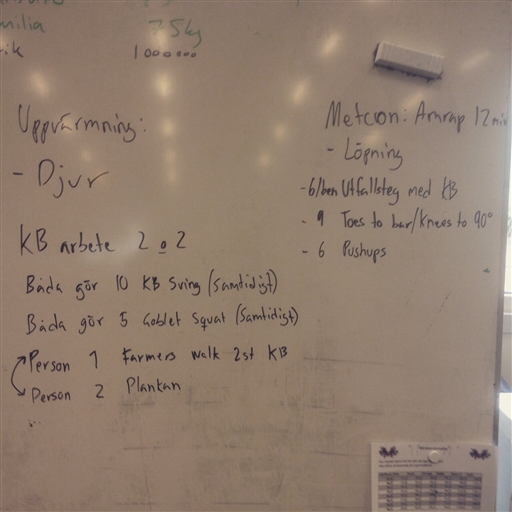 milia 75kg
ik 1000000
Uppvärmning:
- Djur
KB arbete 2 o 2
Båda gör 10 KB Sving (Samtidigt)
Båda gör 5 Goblet Squat (Samtidigt)
Person 1 Farmers walk 2st KB
Person 2 Plankan
Metcon: Amrap 12 min
- Löpning
- 6/ben Utfallsteg med KB
- 9 Toes to bar/Knees to 90°
- 6 Pushups